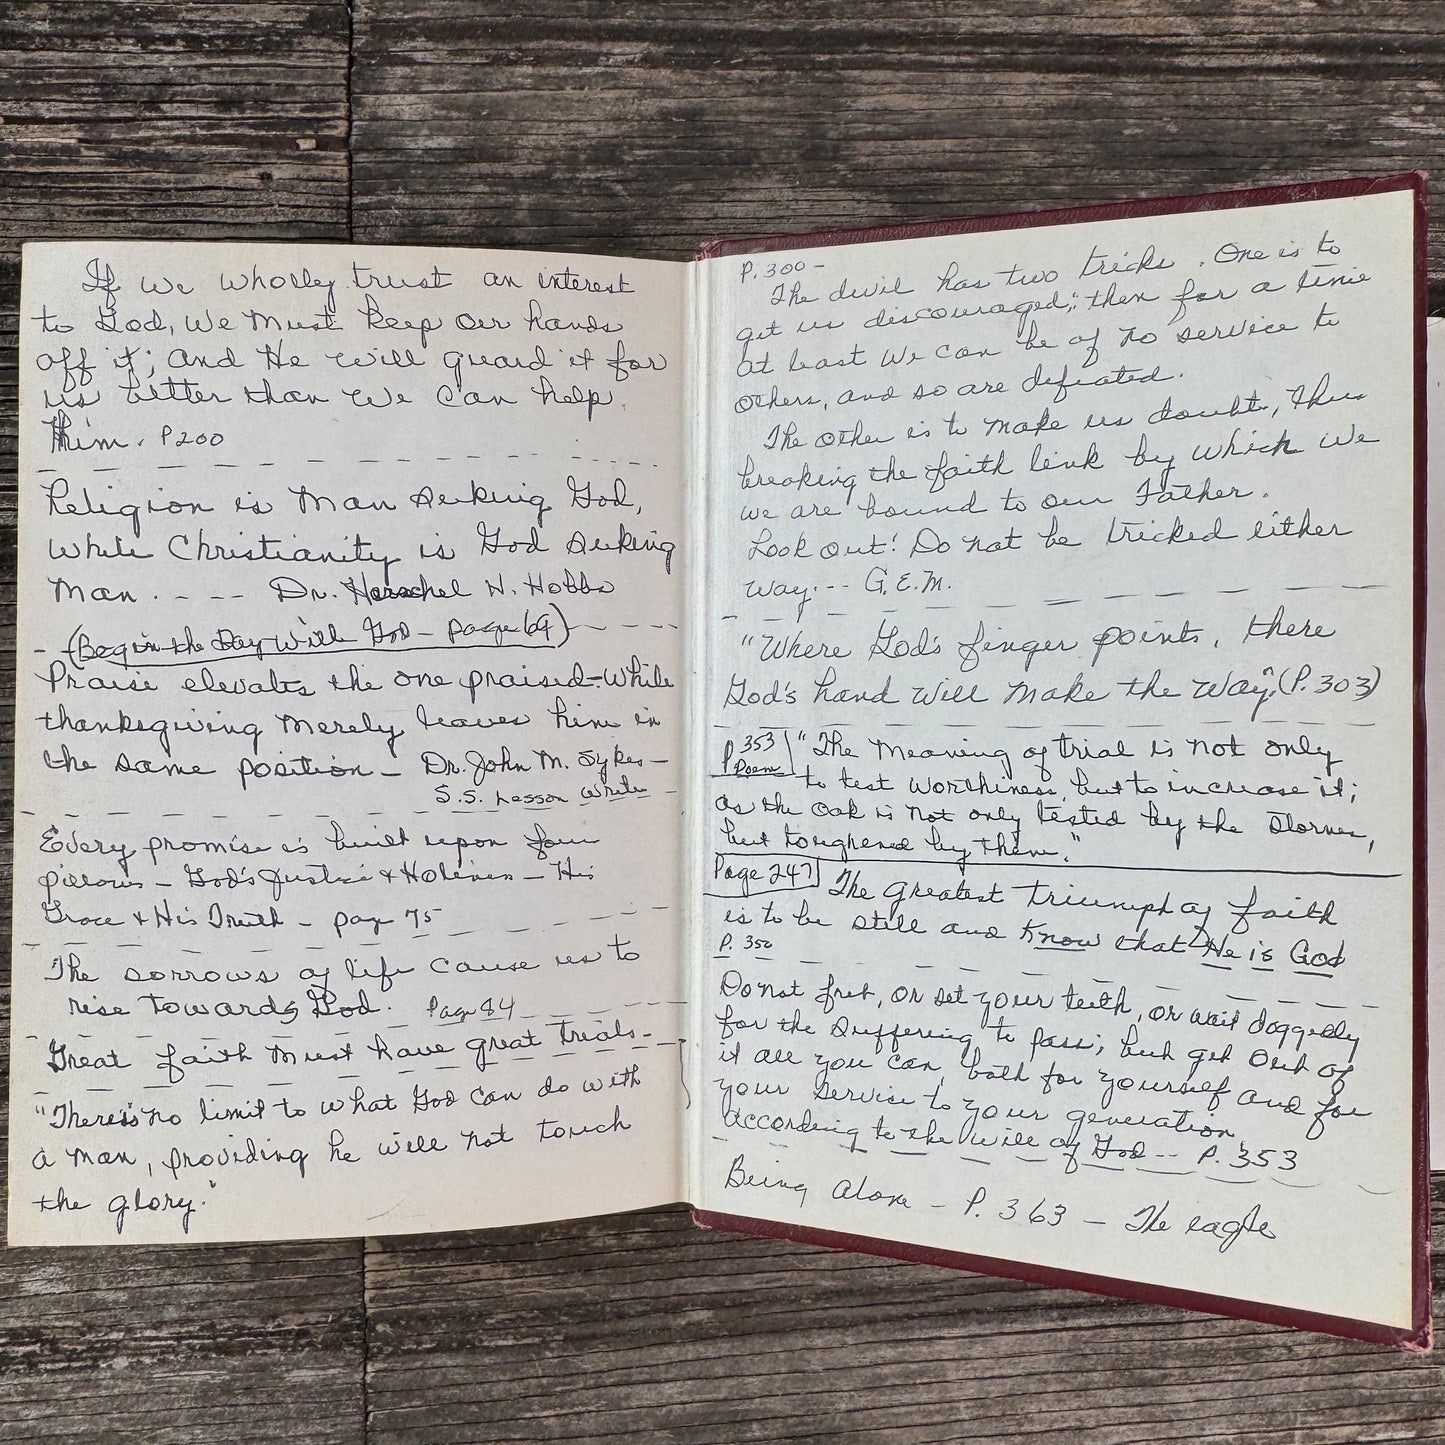 If we wholly trust an interest
to God, we must keep our hands
off it; and He will guard it for
us better than we can help
Him. P200
Religion is man seeking God,
while Christianity is God seeking
man. - - - Dr. Herschel H. Hobbs
(Begin the Day with God - page 69)
Praise elevates the one praised - while
thanksgiving merely leaves him in
the same position - Dr. John M. Sykes -
S.S. Lesson Writer
Every promise is built upon four
pillows - God's Justice & Holiness - His
Grace & His Truth - page 75
The sorrows of life cause us to
rise towards God. Page 84
Great faith must have great trials -
"There's no limit to what God can do with
a man, providing he will not touch
the glory."
P. 300 -
The devil has two tricks. One is to
get us discouraged; then for a time
at least we can be of no service to
others, and so are defeated.
The other is to make us doubt, thus
breaking the faith link by which we
we are bound to our Father.
Look out! Do not be tricked either
way. - - G.E.M.
"Where God's finger points, there
God's hand will make the way." (P. 303)
P 353 Poem "The meaning of trial is not only
to test worthiness, but to increase it;
as the oak is not only tested by the storms,
but toughened by them."
Page 247 The greatest triumph of faith
is to be still and know that He is God
P. 350
Do not fret, or set your teeth, or wait doggedly
for the suffering to pass; but get out of
it all you can, both for yourself and for
your service to your generation,
according to the will of God - - P. 353
Being alone - P. 363 - The eagle